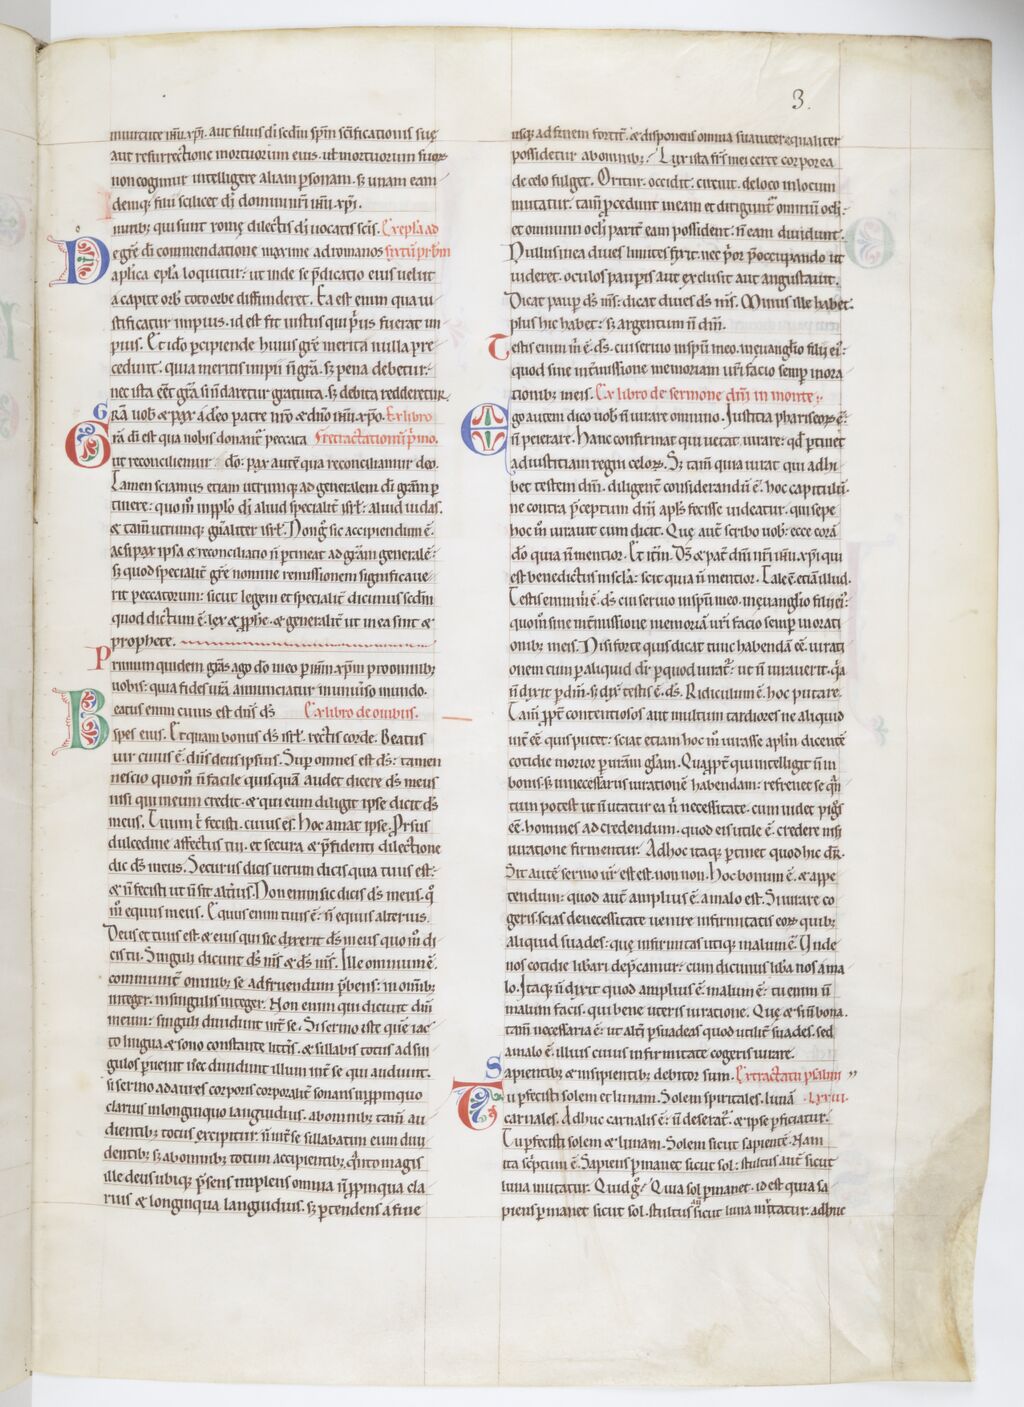 3.
in uirtute ihu xpi. aut filius di scdm spm scificationis suę
aut resurrectione mortuorum eius. ut mortuorum suoꝝ
non cogimur intelligere aliam psonam. sꝫ unam eam
demq; filii scilicet di dominum nrm ihm xpi.
Omnibꝫ qui sunt romę dilectis di uocatis scis. Ex epla ad
De gre di commendatione maxime ad romanos sixtum prbm
aplica epla loquitur: ut inde se pdicatio eius uelut
a capite orbis toto orbe diffunderet. Ea est enim qua iu
stificatur impius. id est fit iustus qui prius fuerat im
pius. Et ido percipiende huius gre merita nulla pre
cedunt: quia meritis impii n gra. sꝫ pena debetur:
nec ista eet gra si n daretur gratuita. sꝫ debita redderetur.
Gra uob & pax a deo patre nro & dno ihu xpo. Ex libro
Gra di est qua nobis donant peccata retractationum primo.
ut reconciliemur do. pax aute qua reconciliamur deo.
Tamen sciamus etiam utrumq; ad generalem di gram p
tinere: quom in pplo di aliud specialit isrl. aliud iudas.
& tam utrumq; gnaliter isrl. Non g sic accipiendum e.
ac si pax ipsa & reconciliatio n ptineat ad gram generale:
sꝫ quod specialit gre nomine remissionem significaue
rit peccatorum: sicut legem et specialit dicimus scdm
quod dictum e. lex & pphe. & generalit ut in ea sint &
prophete.
Primum quidem gras ago do meo p ihm xpm pro omnibꝫ
uobis: quia fides ura annunciatur in uniuso mundo.
Beatus enim cuius est dns ds Ex libro de ouibus.
spes eius. Et quam bonus ds isrl. rectis corde. Beatus
uir cuius e. dns deus ipsius. Sup omnes est ds: tamen
nescio quom n facile quis qua audet dicere ds meus
nisi qui in eum credit. & qui eum diligit ipse dicit ds
meus. Tuum t fecisti. cuius es. Hoc amat ipse. Prsus
dulcedine affectus tui. et secura & pfidenti dilectione
dic ds meus. Securus dicis uerum dicis quia tuus est:
& n fecisti ut n sit altius. Non enim sic dicis ds meus. qm
m equus meus. Equus enim tuus e: n equus alterius.
Deus et tuus est & eius qui sic dixerit ds meus quom di
cis tu. Singuli dicunt ds ms & ds ms. Ille omnium e.
communit omnibꝫ se ad fruendum pbens: in omibꝫ
integer. in singulis integer. Non enim qui dicunt dm
meum: singuli diuidunt int se. Si sermo iste que iac
to lingua & sono constante littis. & sillabis totus ad sin
gulos puenit nec diuidunt illum int se qui audiunt.
si sermo ad aures corporis corporalit sonans in ppinquo
clarius in longinquo languidius. ab omnibꝫ tam au
dientibꝫ totus excipitur. n int se sillabatim eum diui
dentibꝫ sꝫ ab omnibꝫ totum accipientibꝫ. qnto magis
ille deus ubiq; psens implens omnia n ppinqua cla
rius & longinqua languidius. sꝫ ptendens a fine
usq; ad finem fortit. & disponens omnia suauiter equaliter
possidetur ab omnibꝫ? Lux ista frs mei certe corporea
de celo fulget. Oritur. occidit. circuit. de loco in locum
mutatur. tam pcedunt in eam et dirigunt omnium oclj.
et omnium oclj parit eam possident. n eam diuidunt.
Nullus in ea diues limites fixit. nec prior poccupando ut
uideret. oculos paupis aut exclusit aut angustauit.
Dicat paup ds ms: dicat diues ds ms. Minus ille habet.
plus hic habet: sꝫ argentum n dm.
Testis enim m e. ds. cui seruio in spu meo. in euanglio filii ei:
quod sine int missione memoriam uri facio semp in ora
tionibꝫ meis. Ex libro de sermone dni in monte.
Ego autem dico uob n iurare omnino. Iustitia phariseoꝝ e:
n peierare. Hanc confirmat qui uetat iurare: qd ptinet
ad iustitiam regni celoꝝ. Sꝫ tam quia iurat qui adhi
bet testem dm. diligent considerandu e. hoc capitulu.
ne contra pceptum dni apls fecisse uideatur. qui sepe
hoc m iurauit cum dicit. Que aut scribo uob: ecce cora
do quia n mentior. Et itm. Ds & pat dni nri ihu xpi qui
est benedictus in scla: scit quia n mentior. Tale e. etia illud.
Testis enim m e. ds. cui seruio in spu meo. in euanglio filii ei:
quom sine int missione memoria uri facio semp in orati
onibꝫ meis. Nisi forte quis dicat tunc habenda ee. iurati
onem cum p aliquid dr p quod iurat: ut n iurauerit. qa
n dixit p dm. sꝫ dix testis e. ds. Ridiculum e. hoc putare.
Tam ppt contentiosos aut multum tardiores ne aliquid
int ee. quis putet: sciat etiam hoc m iurasse aplm dicente
cotidie morior p uram glam. Quappt qui intelligit n in
bonis. sꝫ in necessariis iuratione habendam: refrenet se qm
tum potest ut n utatur ea n necessitate. cum uidet pigs
ee. homines ad credendum. quod eis utile e. credere nisi
iuratione firmentur. Ad hoc itaq; ptinet quod hic dr.
Sit aute sermo ur est est. non non. Hoc bonum e. & appe
tendum: quod aut amplius e. a malo est. Si iurare co
geris. scias de necessitate uenire infirmitatis eoꝝ quibꝫ
aliquid suades: que infirmitas utiq; malum e. Unde
nos cotidie libari depcamur: cum dicimus liba nos a ma
lo. Itaq; n dixit quod amplius e. malum e: tu enim n
malum facis. qui bene uteris iuratione. Que & si n bona.
tam necessaria e: ut alti psuadeas quod utilit suades. sed
a malo e. illius cuius infirmitate cogeris iurare.
Sapientibꝫ & insipientibꝫ debitor sum. Ex tractatu psalmi
Tu pfecisti solem et lunam. Solem spiritales. luna lxxiii.
carnales. Adhuc carnalis e: n deserat. & ipse pficiatur.
Tu pfecisti solem & lunam. Solem sicut sapiente. Nam
ita scptum e. Sapiens pmanet sicut sol: stultus aut sicut
luna mutatur. Quid g? Quia sol pmanet. id est quia sa
piens pmanet sicut sol. stultus aut sicut luna mutatur. adhuc